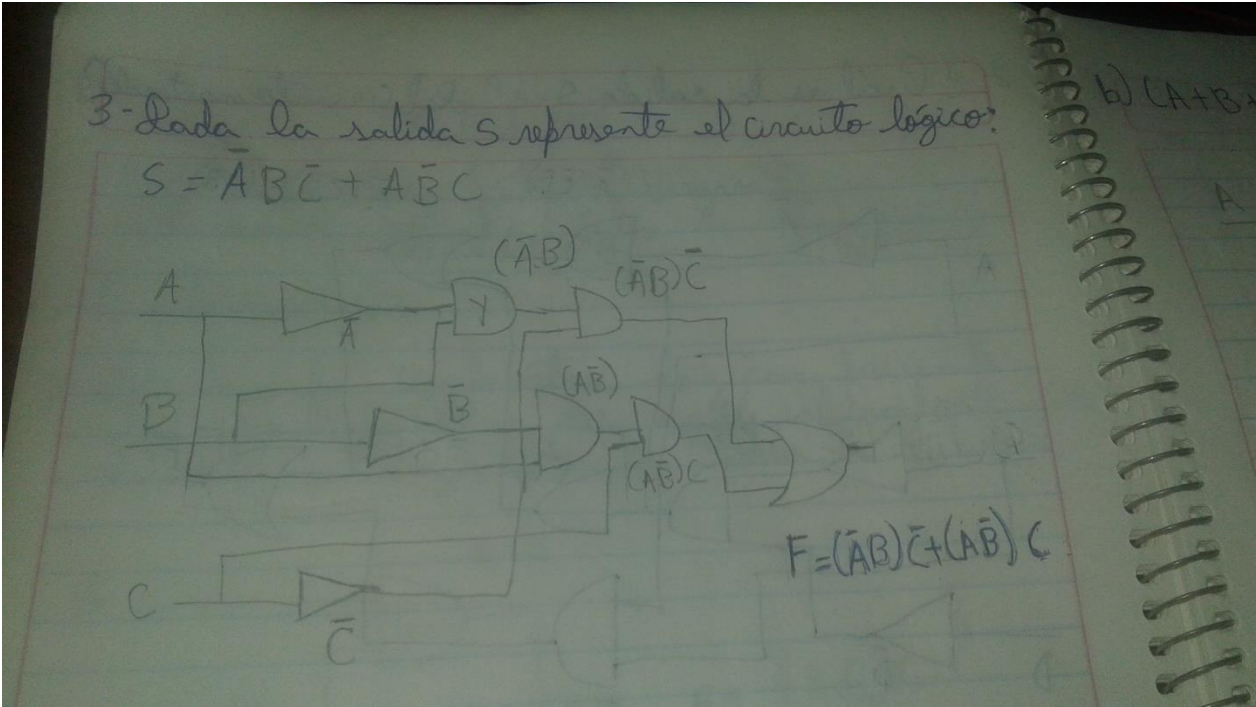 3-Dada la salida S represente el circuito lógico:
S = A̅ B C̅ + A B̅ C
b) (A+B
(A̅.B)
(A̅B)C̅
A
A
Y
A̅
(AB̅)
B
B̅
(AB̅)C
F=(A̅B)C̅+(AB̅) C
C
C̅